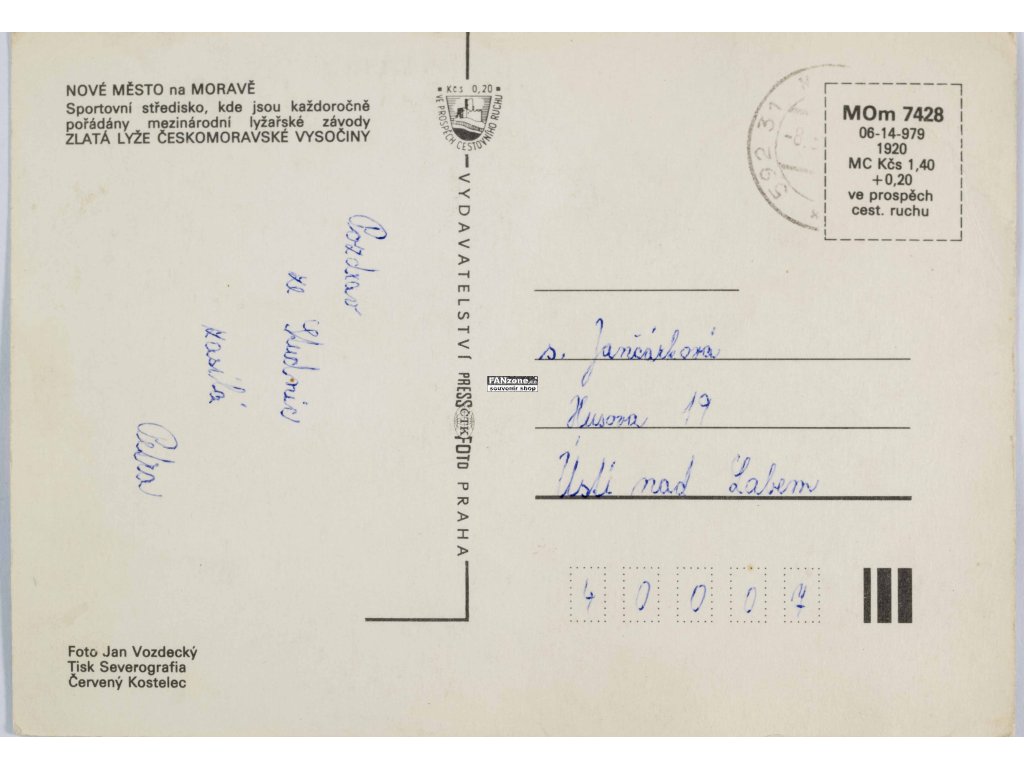 NOVÉ MĚSTO na MORAVĚ
Sportovní středisko, kde jsou každoročně
pořádány mezinárodní lyžařské závody
ZLATÁ LYŽE ČESKOMORAVSKÉ VYSOČINY
Kčs 0,20
VE PROSPĚCH CESTOVNÍHO RUCHU
VYDAVATELSTVÍ PRESSFOTO PRAHA
ČTK
592 31
MOm 7428
06-14-979
1920
MC Kčs 1,40
+0,20
ve prospěch
cest. ruchu
Pozdrav
ze Studnic
zasílá
Petra
FANzone.cz
souvenir shop
s. Jančárková
Husova 19
Ústí nad Labem
4 0 0 0 7
Foto Jan Vozdecký
Tisk Severografia
Červený Kostelec